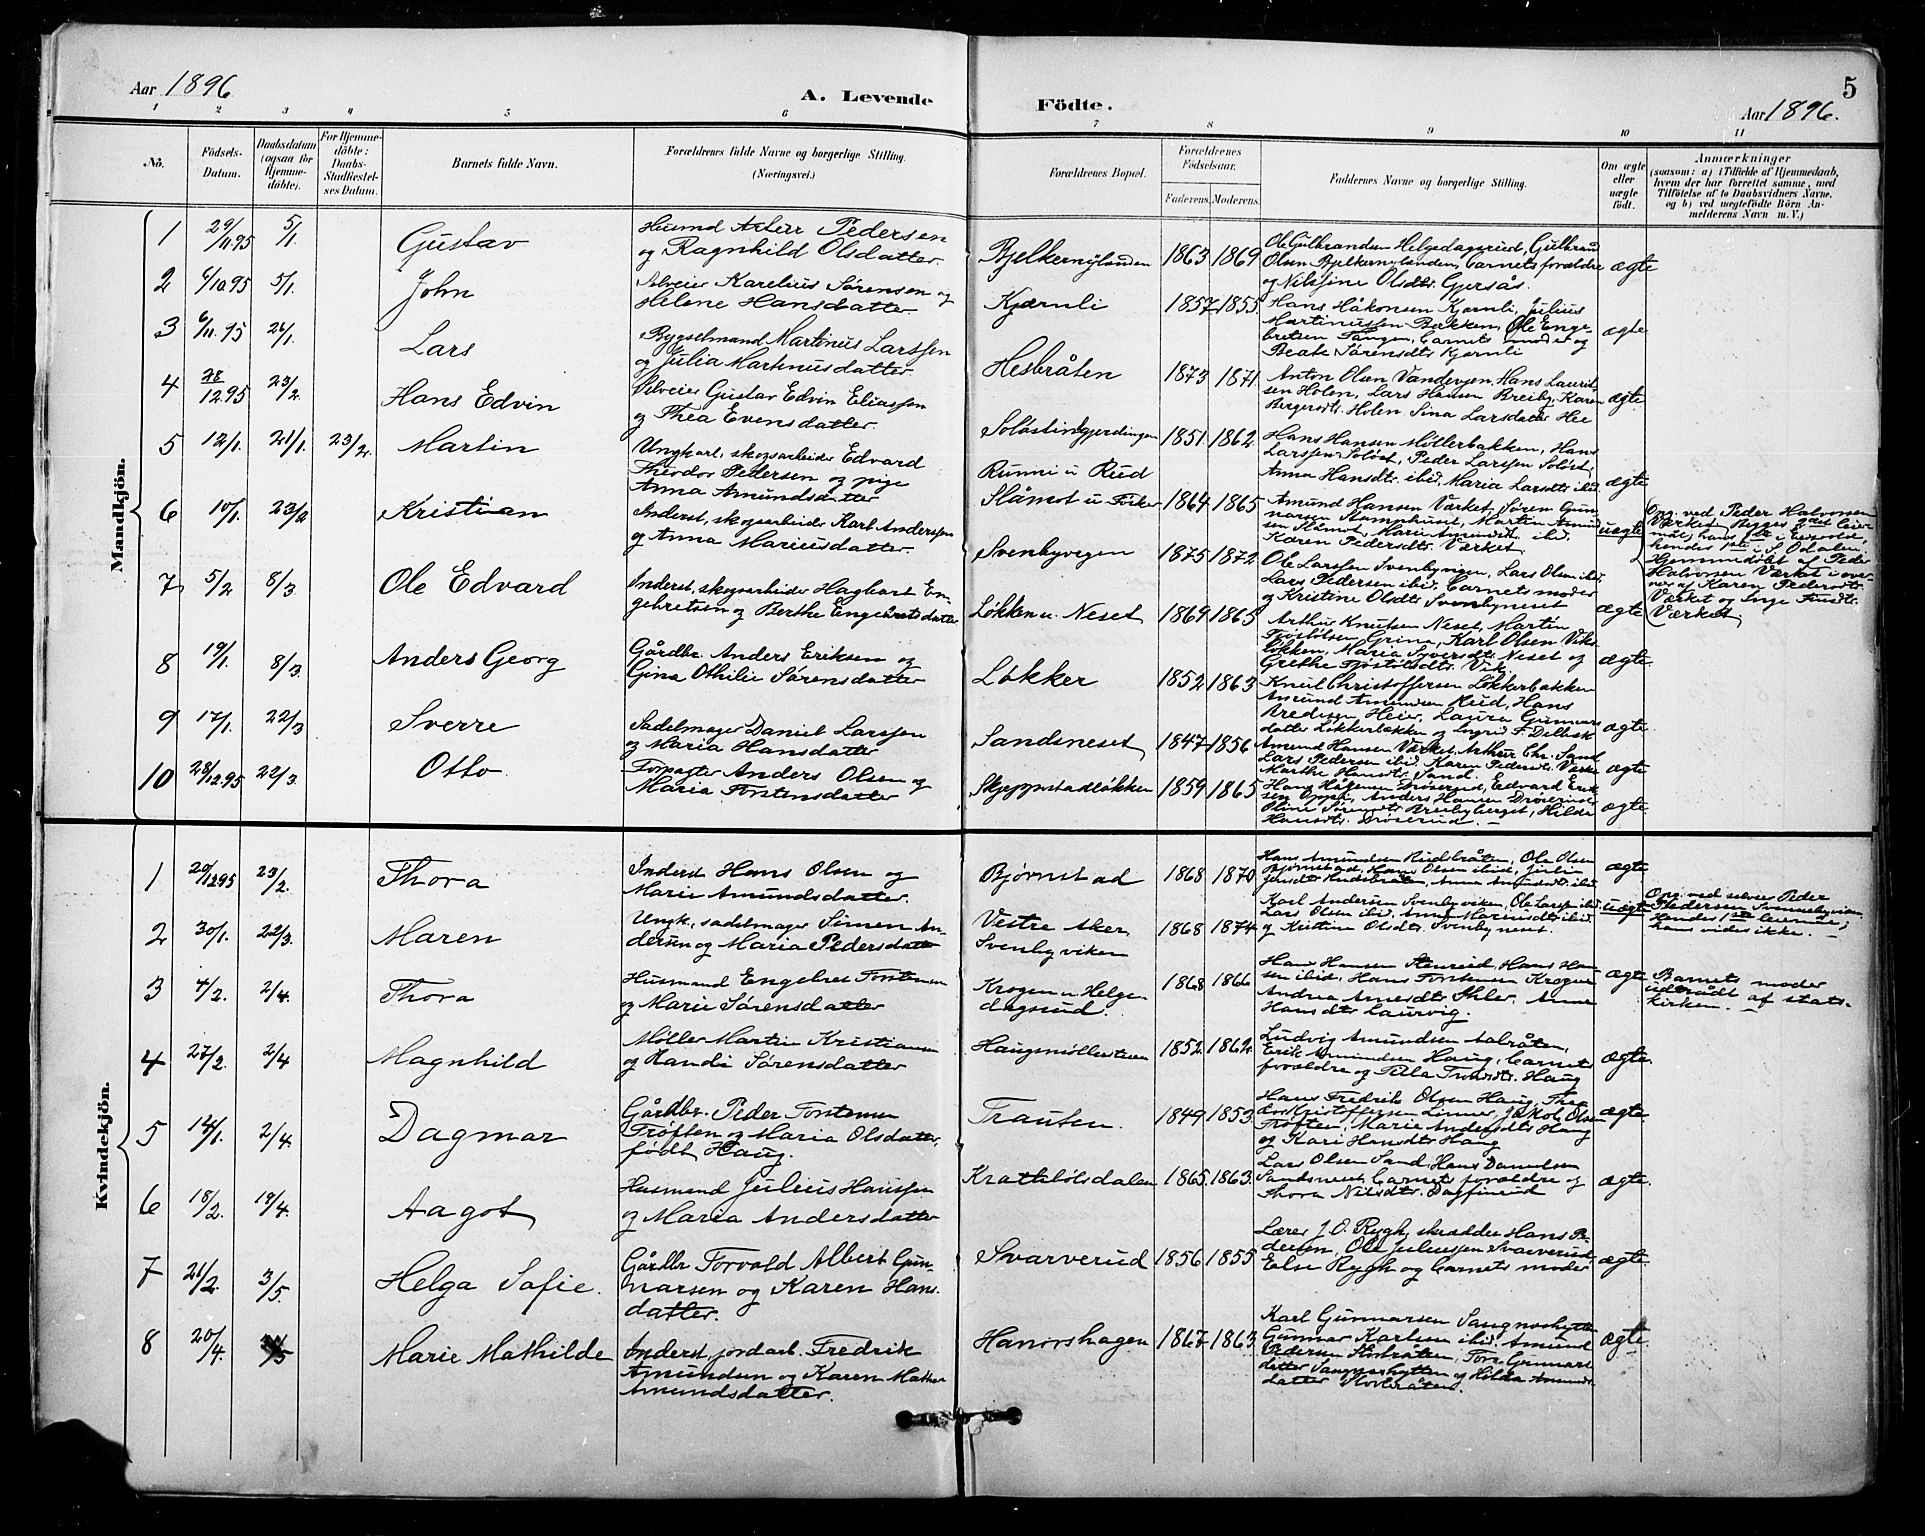 Aar 1896
A. Levende
Födte.
Aar 1896.
5
1 2 3 4 5 6 7 8 9 10 11
No.
Födsels-Datum.
Daabsdatum (ogsaa for Hjemmedöbte).
For Hjemmedöbte: Daabs-Stadfæstelses Datum.
Barnets fulde Navn.
Forældrenes fulde Navne og borgerlige Stilling.
(Næringsvei.)
Forældrenes Bopæl.
Forældrenes Födselsaar.
Faderens. Moderens.
Faddernes Navne og borgerlige Stilling.
Om ægte eller uægte födt.
Anmærkninger
(saasom: a) i Tilfælde af Hjemmedaab,
hvem der har forrettet samme, med
Tilföielse af to Daabsvidners Navne,
og b) ved uægtefödte Börn An-
melderens Navn m. V.)
Mandkjön.
1 29/11 95 5/1 Gustav
Husmd Artur Pedersen
og Ragnhild Olsdatter.
Bjelkernylanden 1863 1869
Ole Gulbrandsen Helgedagsrud, Gulbrand
Olsen Bjelkernylanden, barnets forældre
og Niksine Olsdtr. Gjersås.
ægte
2 6/10 95 5/1. John
Selveier Karelius Sørensen og
Helene Hansdatter.
Kjærnli 1857 1855
Hans Håkonsen Kjærnli, Julius
Martinussen Bakken, Ole Enge-
bretsen Tangen, barnets moder og
Beate Sørensdtr Kjærnli
ægte
3 6/11. 95 26/1. Lars
Bygselmand Martinus Larssen
og Julia Martinusdatter.
Hesbråten 1873 1871.
Anton Olsen Vandevjen, Hans Laurit-
sen Holen, Lars Hansen Breiby, Karen
Bergersdtr. Holen Sina Larsdatter Hee
ægte.
4 28/12.95 23/2. Hans Edvin
Selveier Gustav Edvin Eliassen
og Thea Evensdatter.
Soløstengjerdingen 1851. 1862.
Hans Hansen Møllerbakken, Hans
Larssen Soløst, Peder Larssen Soløst,
Anna Hansdtr. ibid, Maria Larsdtr. ibid.
ægte
5 12/1. 21/1. 23/2. Martin
Ungkarl, skogsarbeider Edvard
Theodor Pedersen og pige
Anna Amundsdatter
Runni u Rud
Slåmot u. Fisker 1864 1865
Amund Hansen Værket, Søren Gun-
narsen Stamphuset, Martin Amund
sen Slåmot, Marie Amundsdtr. ibid.
Karen Pedersdtr. Værket
uægte
Opg. ved Peder Halvorsen
Værket. Begges 2det leier-
mål; hans 1ste i Eidsvold,
hendes 1ste i S. Odalen.
Hjemmedøbt af Peder
Halvorsen Værket i over-
vær af Karen Pedersdtr.
Værket og Inge
Værket
6 10/1. 23/2 Kristian
Inderst, skogsarbeider Karl Anderssen
og Anna Mariusdatter.
Svenbyvegen 1875 1872
Ole Larssen Svenbyvigen, Lars Olsen ibid.
Lars Pedersen ibid. barnets moder
og Kristine Olsdtr Svenbyneset
ægte
7 5/2 8/3. Ole Edvard
Inderst, skogsarbeider Hagbart En-
gebretsen og Berthe Engebretsdatter
Løkken u. Neset 1869 1865
Arthur Knutsen Neset, Martin
Tjøstolsen Grina, Karl Olsen Viks
løkken, Maria Syversdtr. Neset og
Grethe Tjøstolsdtr. Vik.
ægte.
8 19/1. 8/3. Anders Georg
Gårdbr. Anders Eriksen og
Gina Othilie Sørensdatter
Løkker 1852 1863
Knut Christoffersen Løkkerbakken
Amund Amundsen Rud, Hans
Bredesen Heier, Laura Gunnars
datter Løkkerbakken og Ingrid F. Delbæk
ægte.
9 17/1. 22/3 Sverre
Sadelmager Daniel Larssen
og Maria Hansdatter
Sandsneset 1847 1856
Amund Hansen Værket, Arthur Chr. Sand
Lars Pedersen ibid. Karen Pedersdtr. Værket
Marthe Hansdtr. Sand.
ægte
10 28/12.95 22/3. Otto
Forpagter Anders Olsen og
Maria Torstensdatter
Skjeppstadløkken 1859 1865
Hans Håkensen Drøserud, Edvard Erik
sen Oppi, Anders Hansen Drøserud
Oline Sørensdtr Breibyberget, Hilda
Hansdtr. Drøserud.
ægte.
Kvindekjön.
1 20/12 95 23/2. Thora
Inderst Hans Olsen og
Marie Amundsdatter.
Bjørnstad 1868 1870
Hans Amundsen Rudsbråten, Ole Olsen
Bjørnstad, Hans Olsen ibid, Julia
Jensdtr Rudsbråten, Anna Amundsdtr ibid
ægte
2 30/1. 22/3. Maren
Ungk., sadelmager Simen An-
dersen og Maria Pedersdatter
Vestre Aker
Svenbyviken 1868 1874
Karl Andersen Svenbyviken, Ole Larssen ibid.
Lars Olsen ibid. Anna Mariusdtr ibid
og Kristine Olsdtr. Svenbyneset.
uægte
Opg. ved selveier Peder
Pedersen Svennebyvigen.
Hendes 1ste leierm.;
hans vides ikke.
3 4/2. 2/4. Thora
Husmand Engebret Torstensen
og Marie Sørensdatter
Krogen u. Helge-
dagsrud. 1868 1866
Hans Hansen Stenrud, Hans Han
sen ibid, Hans Torstensen Krogen
Andrea Arnesdtr. Anne
Hansdtr Laurvig.
ægte
Barnets moder
udtrådt af stats-
kirken.
4 27/2. 2/4 Magnhild
Møller Martin Kristiansen
og Randi Sørensdatter
Haugsmøllerstuen 1852 1862.
Ludvig Amundsen Aalråten,
Erik Amundsen Haug, barnets
forældre og Pella Haug
ægte.
5 14/1. 2/4. Dagmar
Gårdbr. Peder Torstensen
Trøften og Maria Olsdatter,
født Haug.
Trauten. 1849 1853.
Hans Fredrik Olsen Haug, Thea
Kristoffersen Linner, Jakob Olsen
Trøften, Marie Andersdtr Haug
og Kari Hansdtr Haug
ægte.
6 18/2. 19/4. Aagot
Husmand Julius Hanssen
og Maria Andersdatter
Krattebølsdalen 1865. 1863.
Lars Olsen Sand, Hans Danielsen
Sandsneset, barnets forældre og
Thora Nilsdtr. Dagfinrud
ægte.
7 21/2. 3/5. Helga Sofie.
Gårdbr Torvald Albert Gun-
narsen og Karen Hans-
datter.
Svarverud 1856 1855
Lærer J. O. Rygh, skrædder Hans Pe-
dersen, Ole Juliussen Svarverud
Else Rygh og barnets moder
ægte.
8 20/4. Marie Mathilde
Inderst, jordarb. Fredrik
Amundsen og Karen Mathea
Amundsdatter.
Hanorshagen 1867 1863.
Karl Gunnarsen Sangnæshytten
Gunnar Karlsen ibid Amund
Pedersen Storbråten, Tore Gunnars
datter Sangnæshytten og Hilda Amunds-
datter Storbråten.
ægte